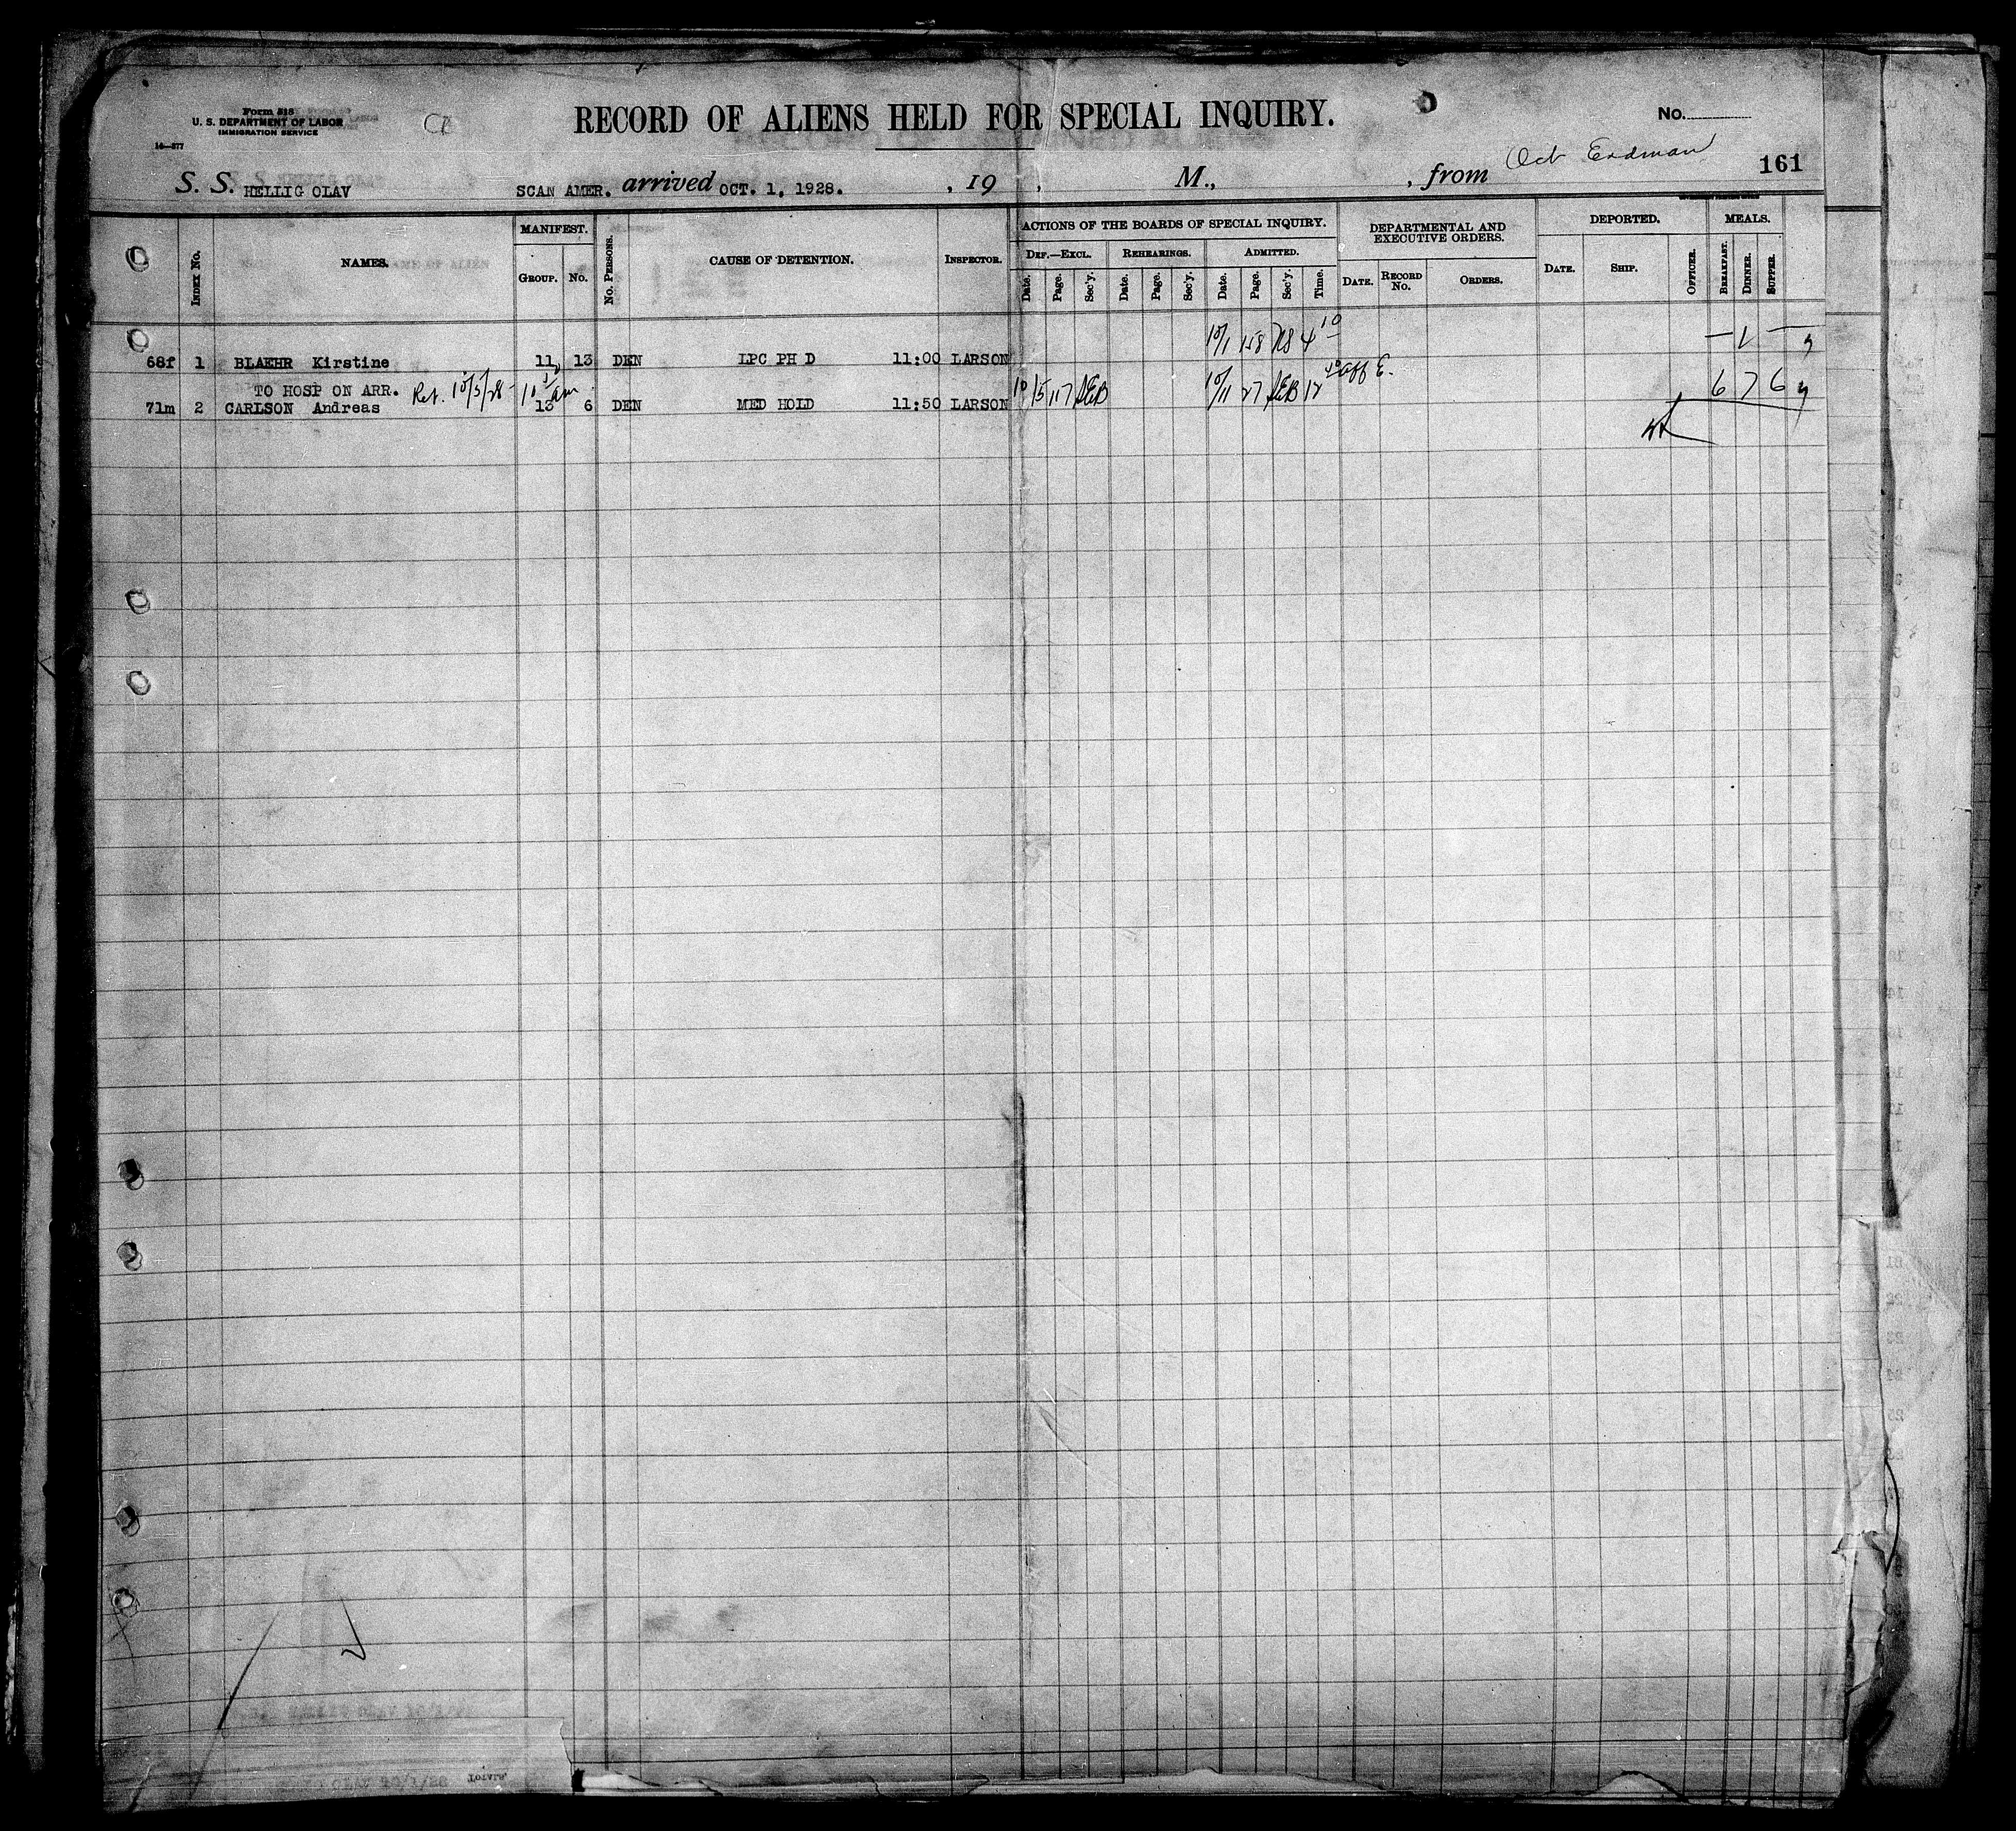 Form 518
U. S. DEPARTMENT OF LABOR
IMMIGRATION SERVICE
14—577
RECORD OF ALIENS HELD FOR SPECIAL INQUIRY.
No.
161
S. S. HELLIG OLAV SCAN AMER. arrived OCT. 1, 1928. , 19 , M., , from
INDEX No. NAMES. MANIFEST. GROUP. No. No. PERSONS. CAUSE OF DETENTION. INSPECTOR. ACTIONS OF THE BOARDS OF SPECIAL INQUIRY. DEPARTMENTAL AND EXECUTIVE ORDERS. DEPORTED. MEALS.
DEF.—EXCL. REHEARINGS. ADMITTED.
Date. Page. Sec'y. Date. Page. Sec'y. Date. Page. Sec'y. Time. DATE. RECORD No. ORDERS. DATE. SHIP. OFFICER. BREAKFAST. DINNER. SUPPER.
68f 1 BLAEHR Kirstine 11 13 DEN LPC PH D 11:00 LARSON 10/1 158 4 10 — 1 —
TO HOSP ON ARR. Ret. 10/5/28
71m 2 CARLSON Andreas 13 6 DEN MED HOLD 11:50 LARSON 10/5 117 AEB 10/11 27 AEB 12 6 7 6
TOTALS